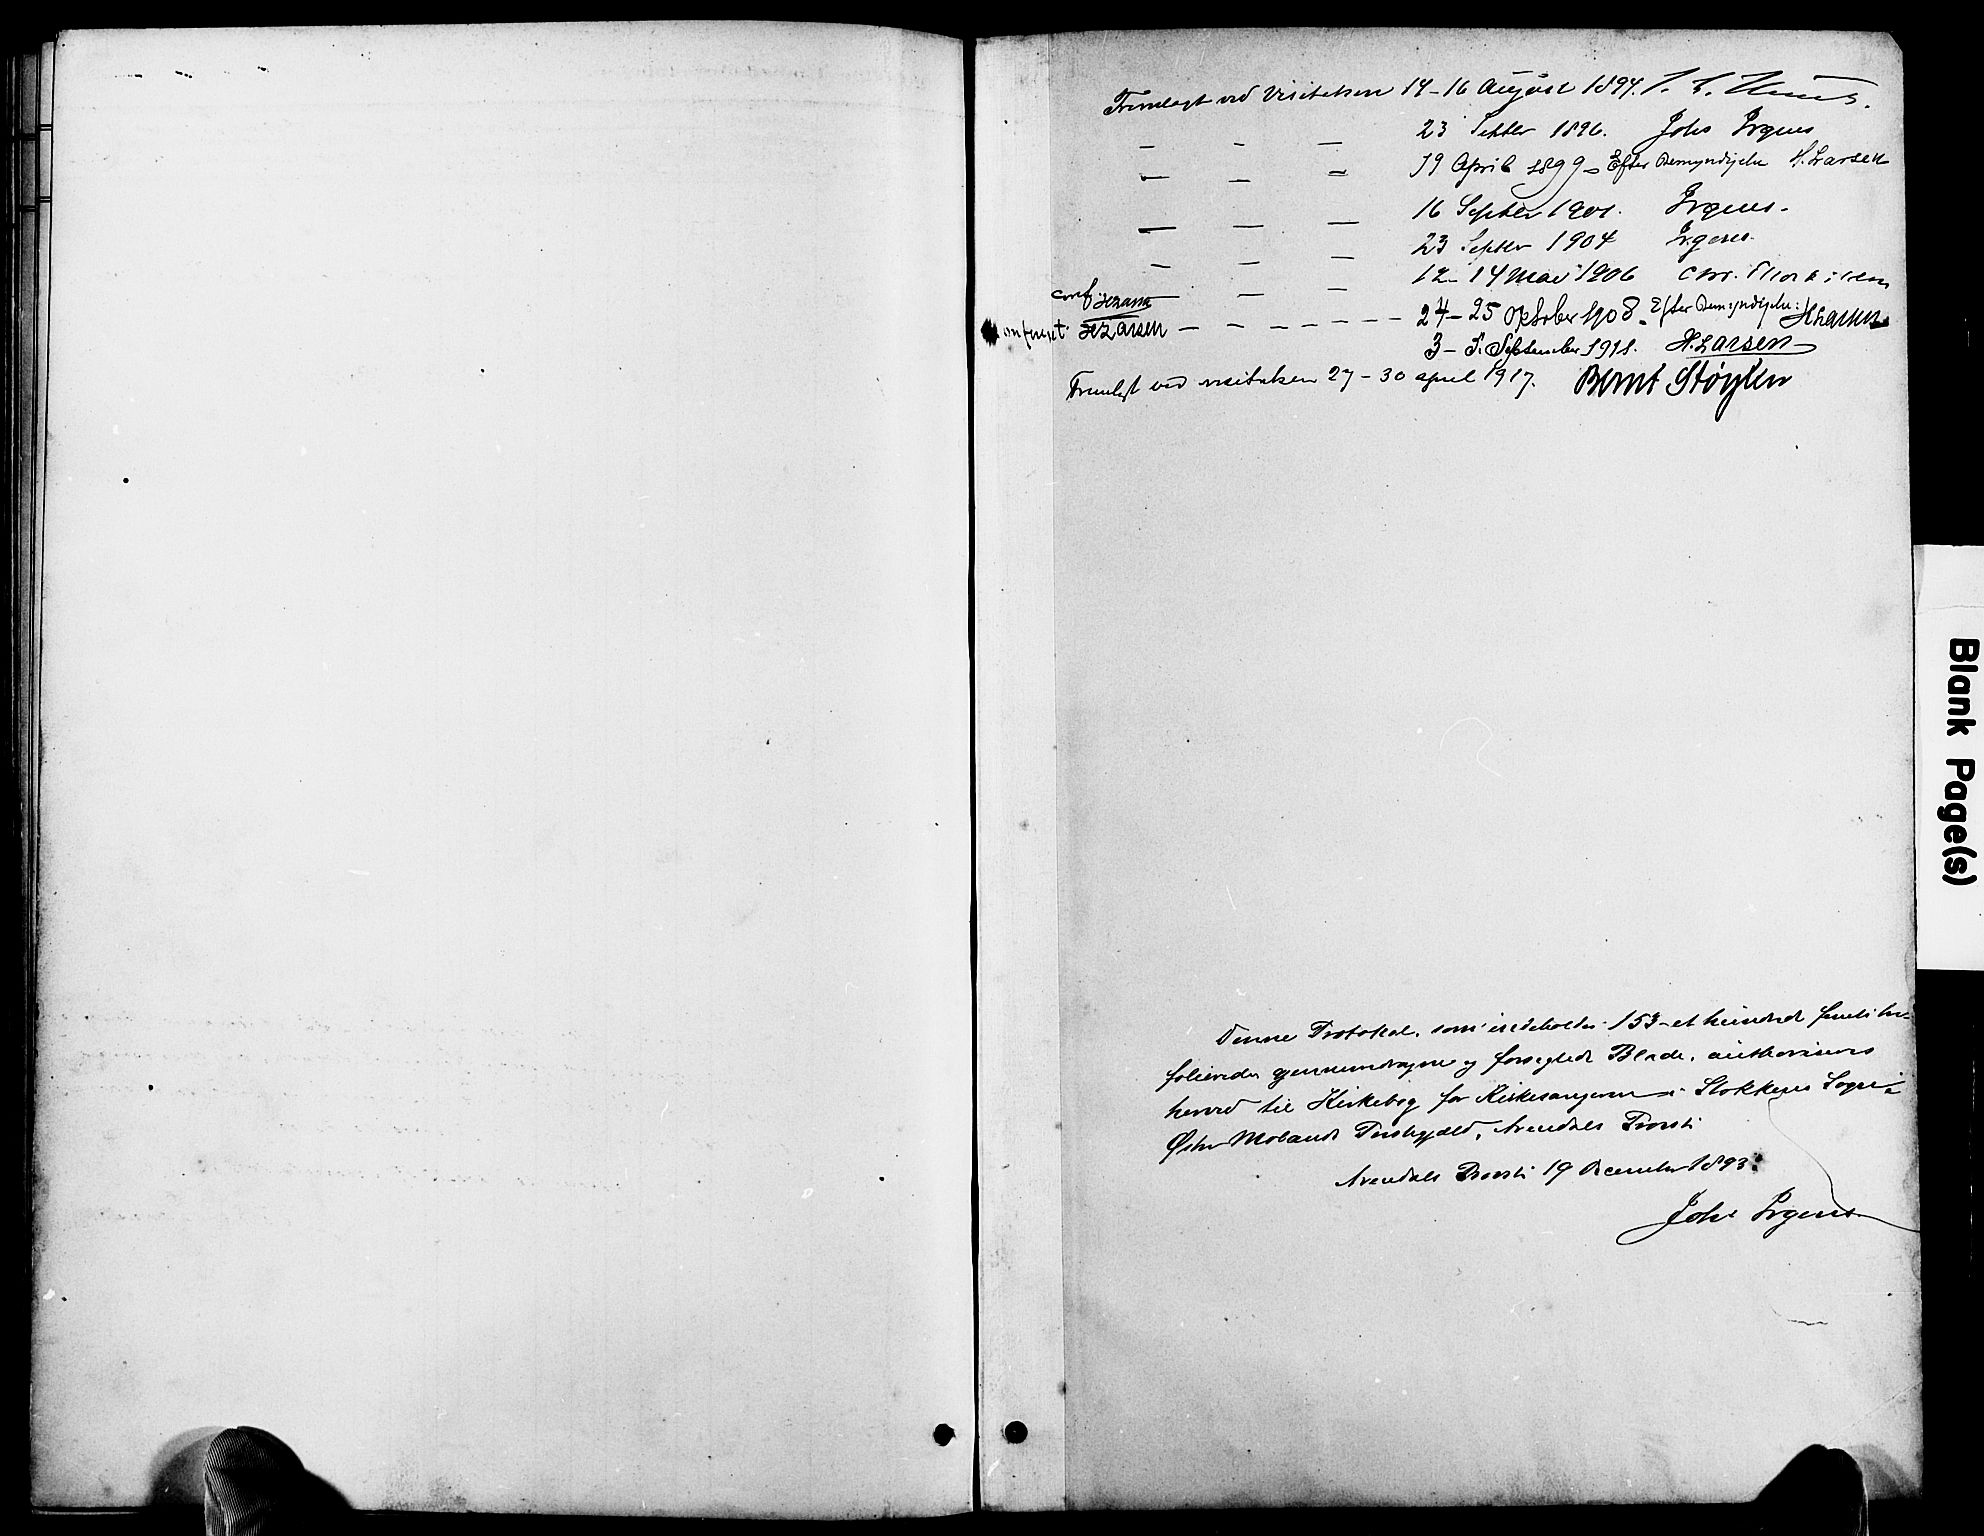 Fremlagt ved Visitatsen 14-16 August 1894.
— — — 23 Septbr 1896. Johs Irgens
— — — 19 April 1899 - Efter Bemyndigelse H. Larsen
— — — 16 Septbr 1901. Irgens.
— — — 23 Septbr 1904 Irgens.
— — — 12-14 Mai 1906 Chr.
conf HLarsen
Konfereret HLarsen — — — — — — 24-25 Oktober 1908. Efter Bemyndigelse: HLarsen
3-5. September 1911. H. Larsen
Fremlagt ved visitatsen 27-30 april 1917. Bernt Støylen
Denne Protokol, som indeholder 153 - et hundred femti tre =
folierede gjennemdragne og forseglede Blade, authoriseres
herved til Kirkebog for Kirkesangeren i Stokkens Sogn i
Østre Molands Præstegjeld, Arendals Provsti
Arendals Provsti 19 December 1893.
Johs Irgens
Blank Page(s)